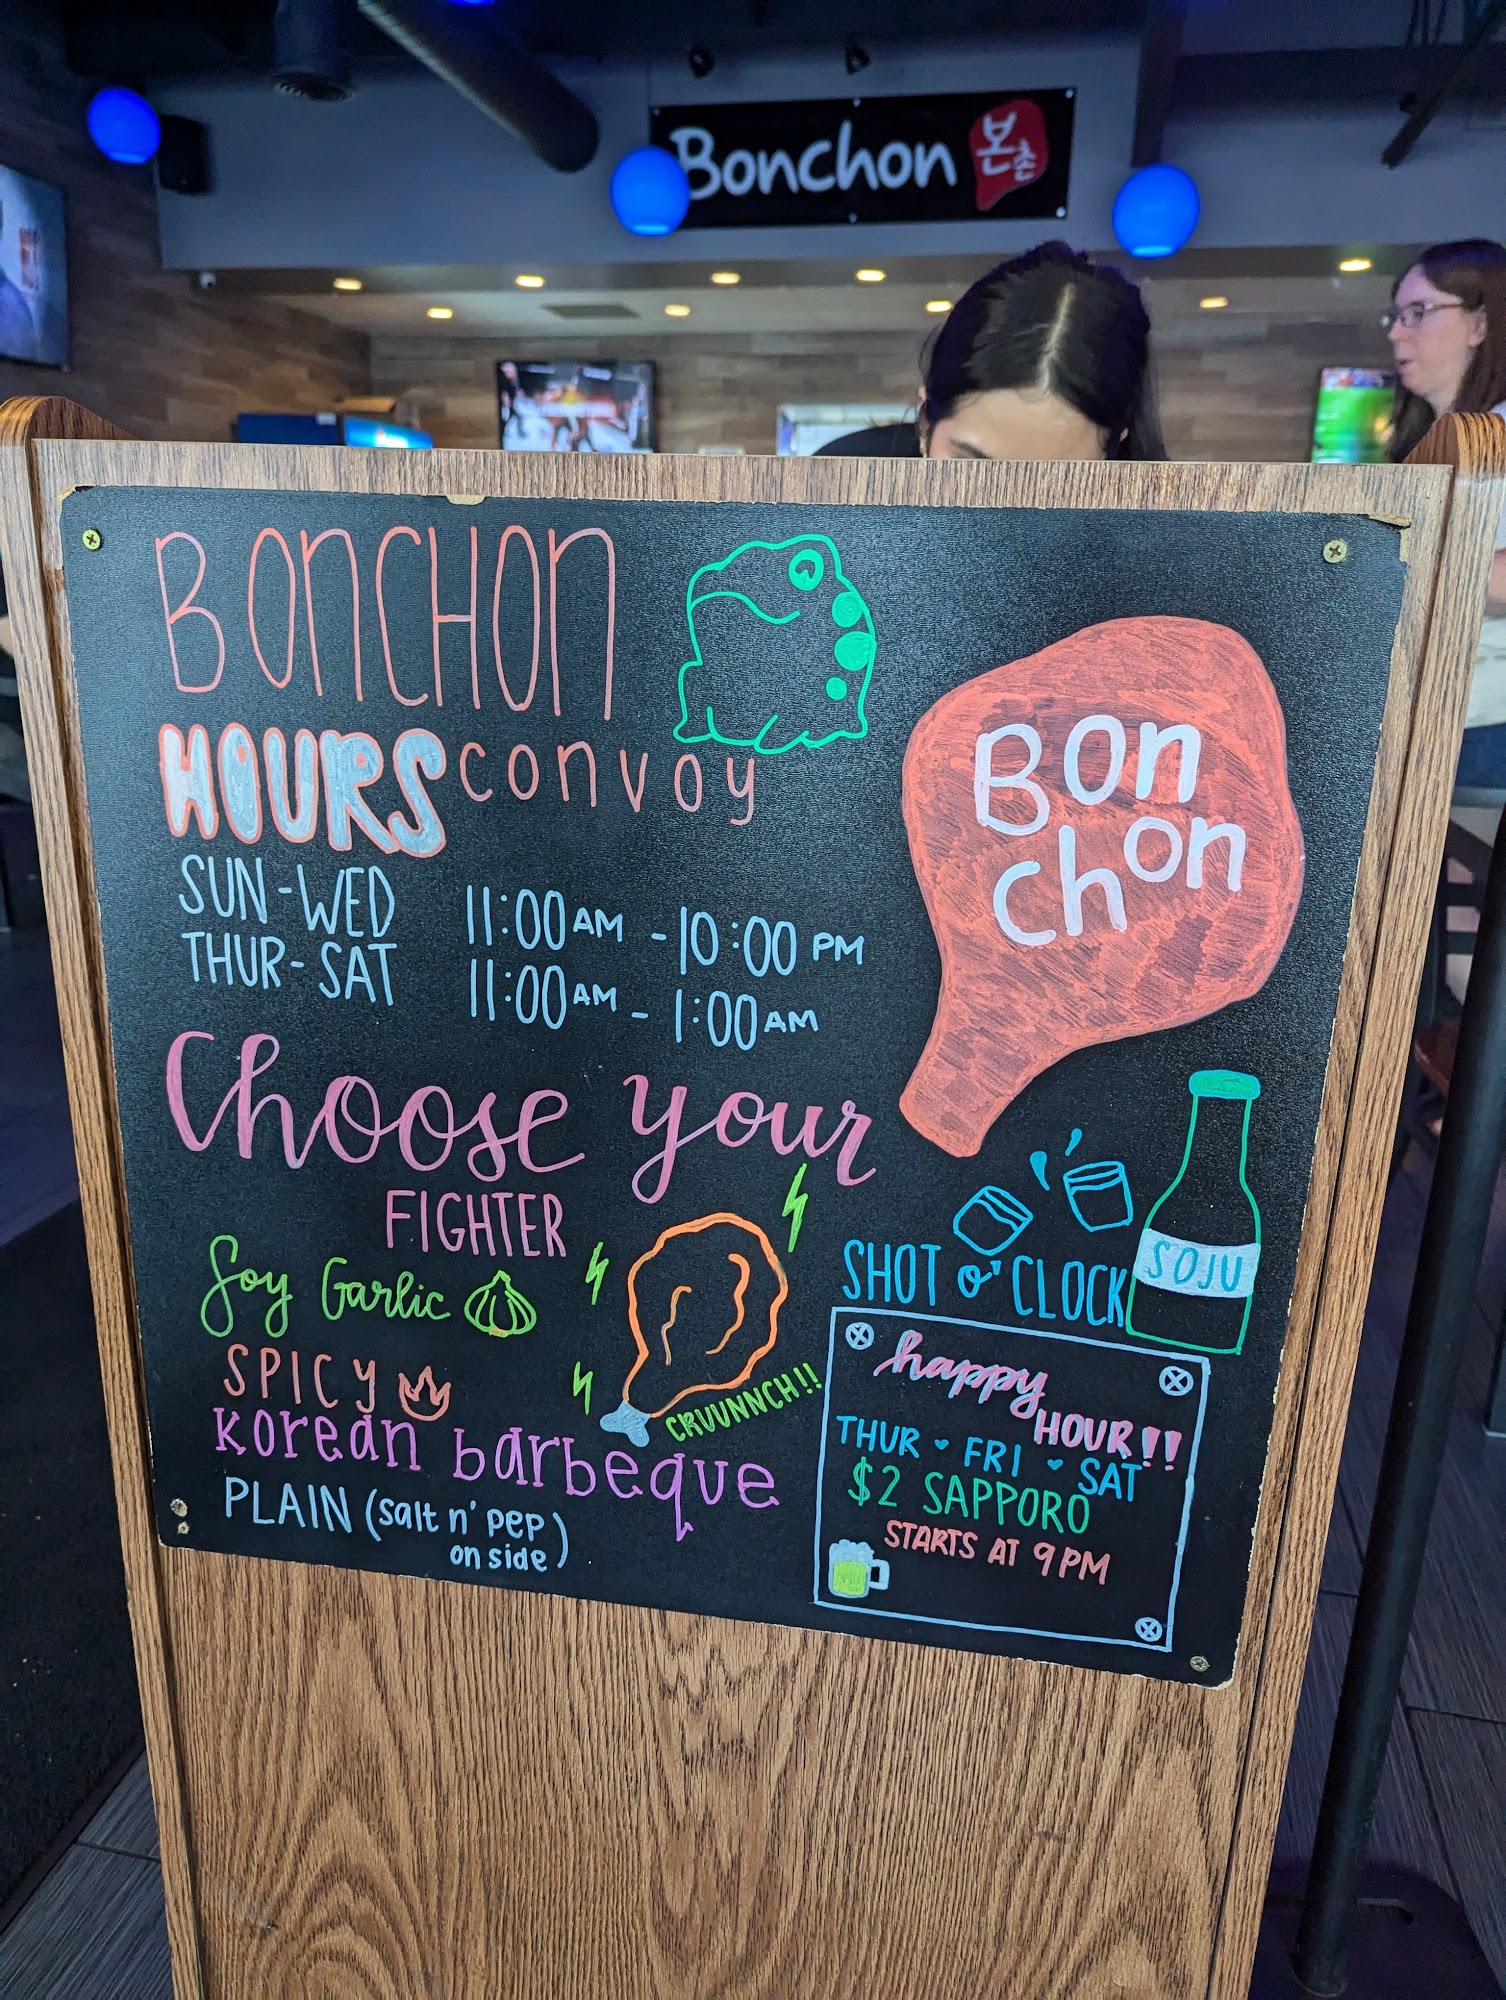 Bonchon 본촌
BONCHON
HOURS convoy
SUN-WED 11:00AM - 10:00 PM
THUR-SAT 11:00AM - 1:00AM
Bon
chon
Choose your
FIGHTER
Soy Garlic
SPICY
Korean barbeque
PLAIN (salt n' pep
on side)
CRUUNNNCH!!
SHOT o' CLOCK
SOJU
happy
HOUR!!
THUR FRI SAT
$2 SAPPORO
STARTS AT 9PM